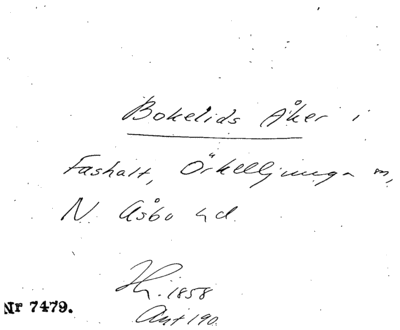 Bokelids Åker i
Fashalt, Örkelljunga sn,
N. Åsbo hd.
Hj. 1858
Ant 190
Nr 7479.